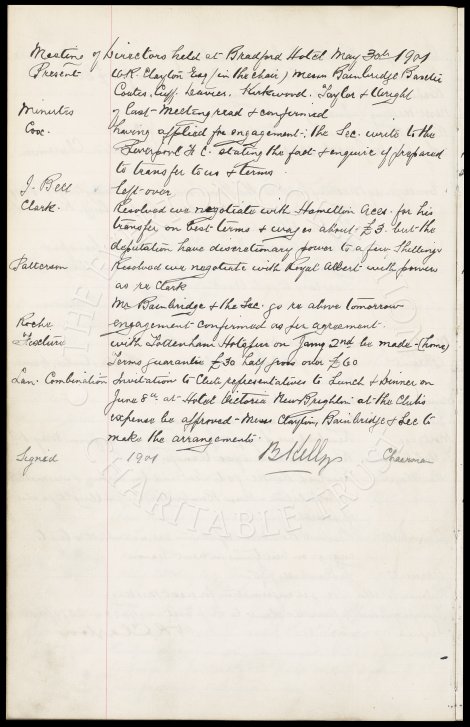 Meeting of Directors held at Bradford Hotel May 30th 1901
Present W. R. Clayton Esq (in the chair) Messrs Bainbridge Baxter
Coates. Cuff. Davies. Kirkwood. Taylor & Wright
Minutes of last Meeting read & confirmed
Cox. having applied for engagement: the Sec. write to the
Liverpool F. C. stating the fact & enquire if prepared
to transfer to us & terms.
J. Bell left over
Clark. Resolved we negotiate with Hamilton Aces. for his
transfer on best terms & wages about £3. but the
deputation have discretionary power to a few shillings
Patterson Resolved we negotiate with Royal Albert with powers
as re Clark
Mr Bainbridge & the Sec. go re above tomorrow
Roche. engagement confirmed as per agreement.
Fixture with Tottenham Hotspur on Jany 2nd be made - (home)
Terms guarantee £30 half gross over £60
Lan. Combination Invitation to Club representatives to Lunch & Dinner on
June 8th at Hotel Victoria New Brighton at the Club's
expense be approved - Messrs Clayton, Bainbridge & Sec to
make the arrangements.
Signed 1901 B Kelly Chairman
CHARITABLE TRUST